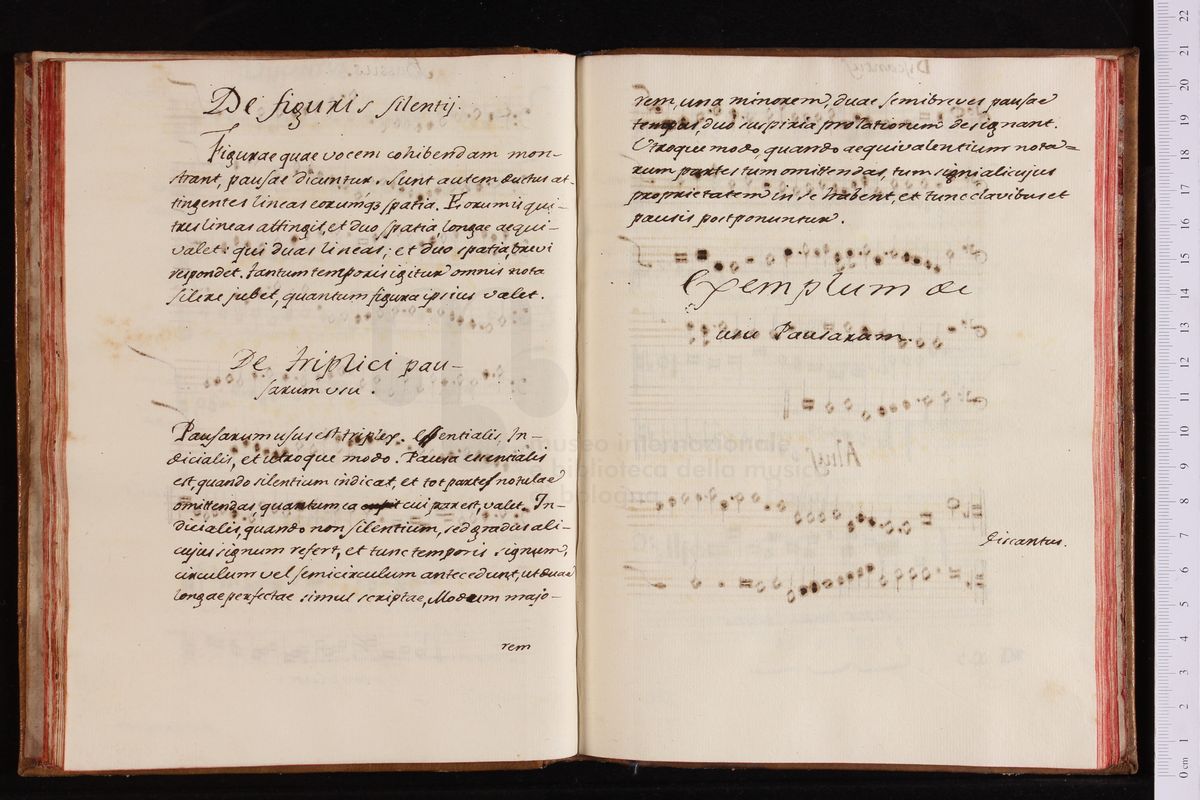 De figuris silentij.
Figurae quae vocem cohibendam mon-
strant, pausae dicuntur. Sunt autem ductus at-
tingentes lineas eorumq; spatia. Horum is qui
tres lineas attingit, et duo spatia, longae aequi-
valet: qui duas lineas; et duo spatia, brevi
respondet. Tantum temporis igitur omnis nota
silere jubet, quantum figura ipsius valet.
De triplici pau-
sarum usu.
Pausarum usus est triplex. Essentialis, In-
dicialis, et utroque modo. Pausa essentialis
est, quando silentium indicat, et tot partes notulae
omittendas, quantum ea cui par est, valet. In-
dicialis, quando non silentium, sed gradus ali-
cujus signum refert, et tunc temporis signum,
circulum vel semicirculum antecedunt, ut duae
longae perfectae simul scriptae, Modum majo-
rem
rem, una minorem, duae semibreves pausae
tempus duo suspiria prolationem designant.
Utroque modo quando aequivalentium nota=
rum partes tum omittendas, tum signi alicujus
proprietatem in se habent, et tunc clavibus et
pausis postponuntur.
Exemplum de
usu Pausarum.
Discantus.
museo internazionale
e biblioteca della musica
bologna
22
21
20
19
18
17
16
15
14
13
12
11
10
9
8
7
6
5
4
3
2
1
0 cm